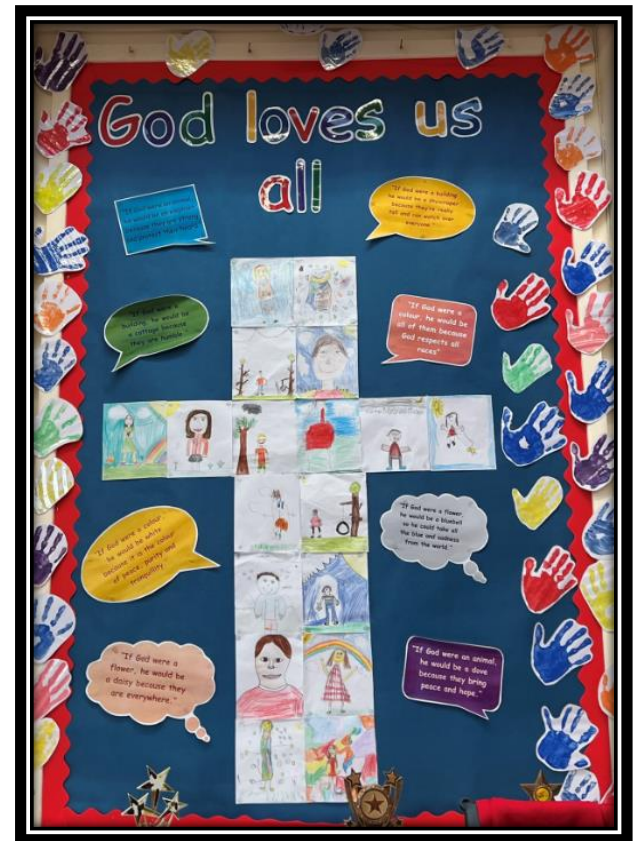 God loves us
all
"If God were an animal,
he would be an elephant
because they are strong
and protect their herd."
"If God were a building,
he would be a skyscraper
because they're really
tall and can watch over
everyone."
"If God were a
building, he would be
a cottage because
they are humble."
"If God were a
colour, he would be
all of them because
God respects all
races"
"If God were a colour,
he would be white
because it is the colour
of peace, purity and
tranquility.
"If God were a flower,
he would be a bluebell
so he could take all
the blue and sadness
from the world."
"If God were a
flower, he would be
a daisy because they
are everywhere."
"If God were an animal,
he would be a dove
because they bring
peace and hope."